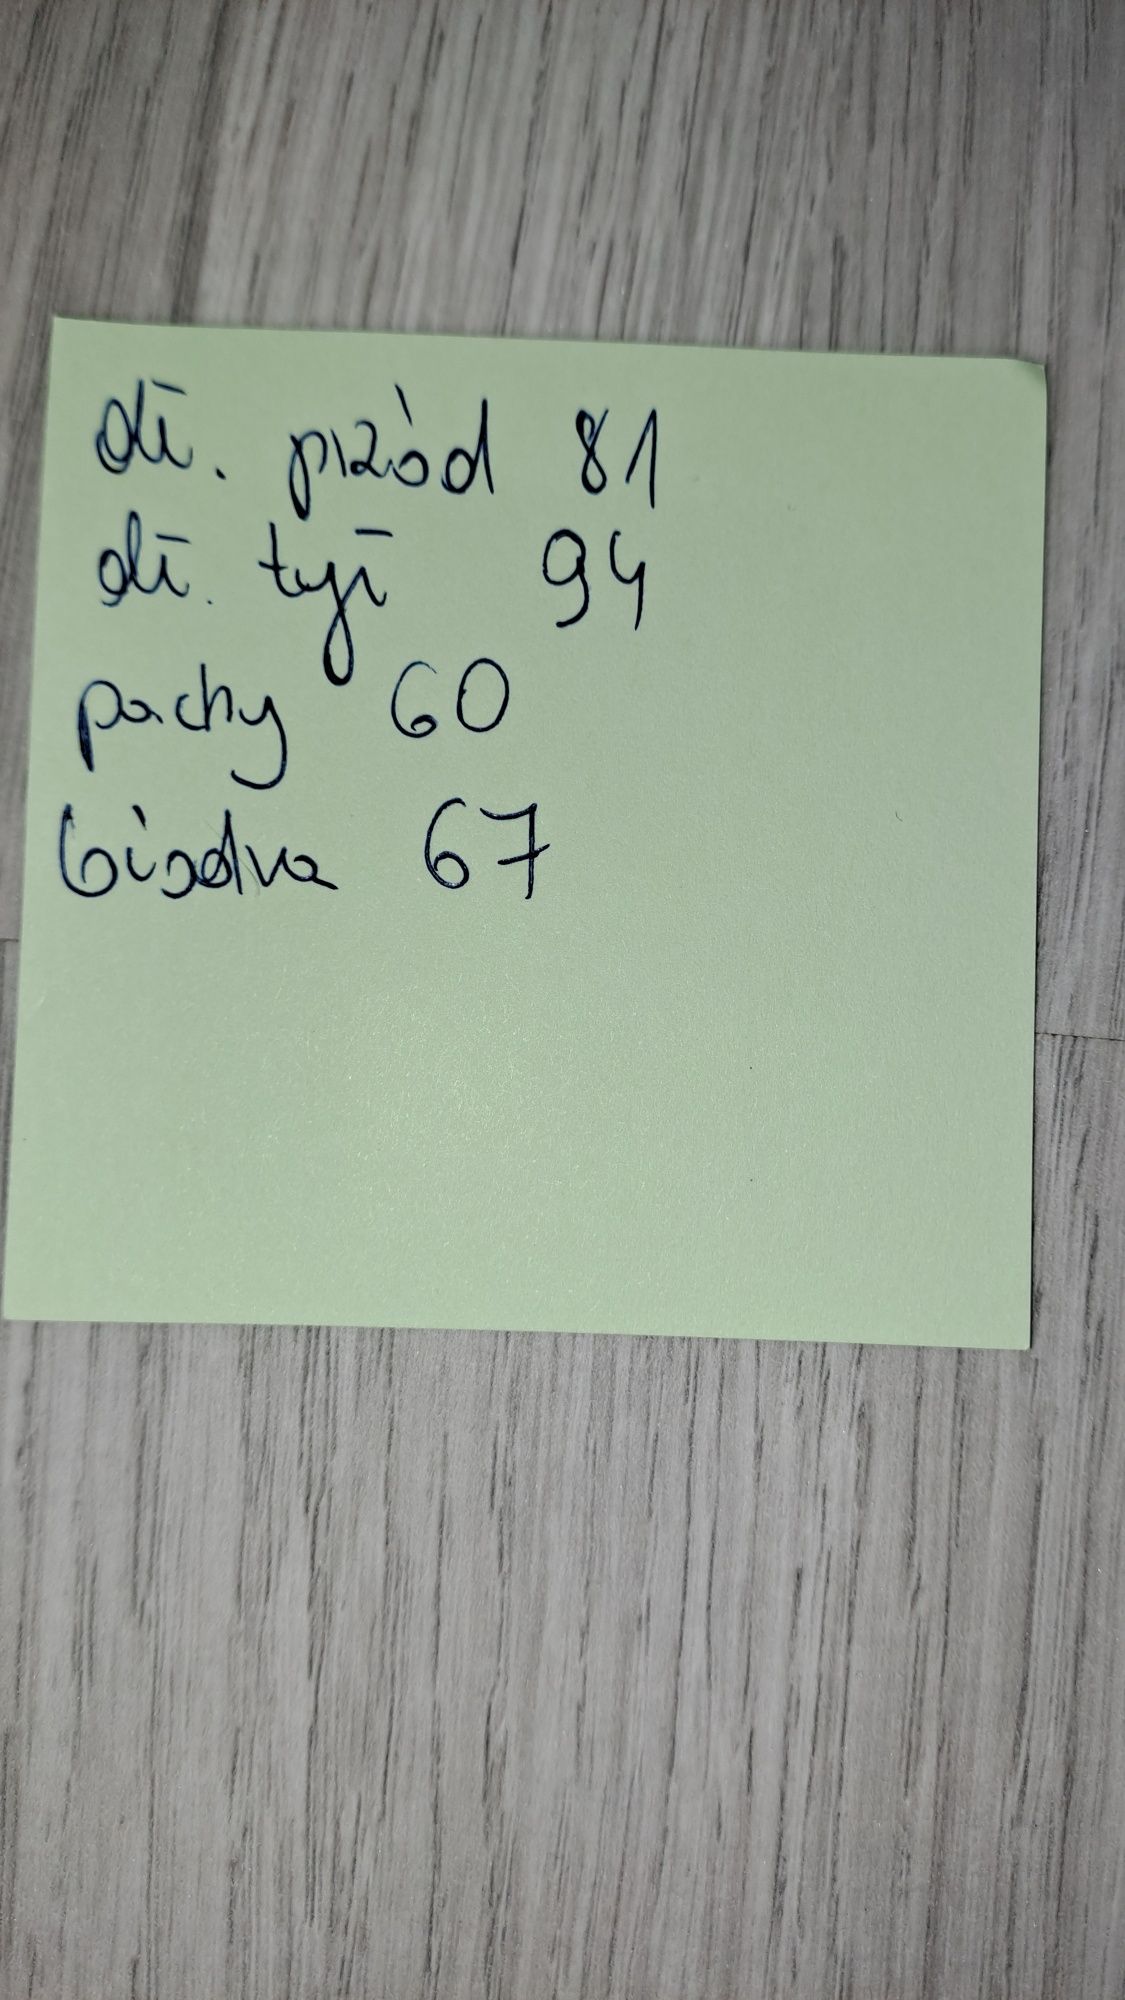 dł. przód 81
dł. tył 94
pachy 60
biodra 67